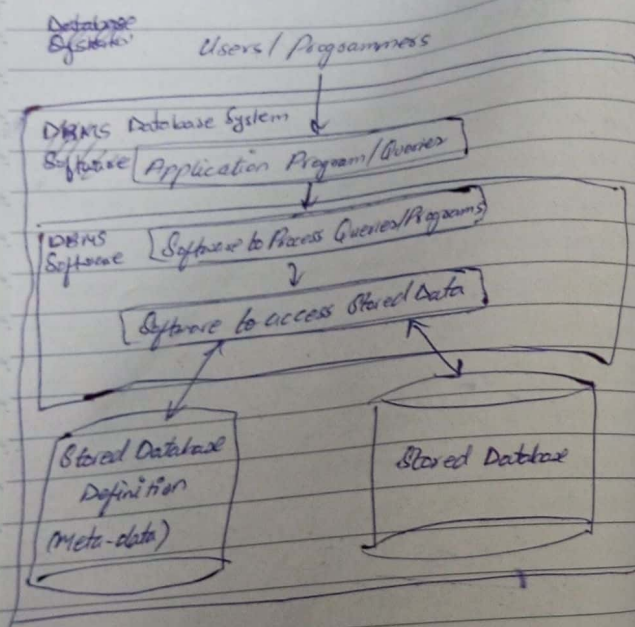 Database
System
Users/Programmers
DBMS Database System
Software
Application Program/Queries
DBMS
Software
Software to Process Queries/Programs
Software to access Stored Data
Stored Database
Definition
(Meta-data)
Stored Database